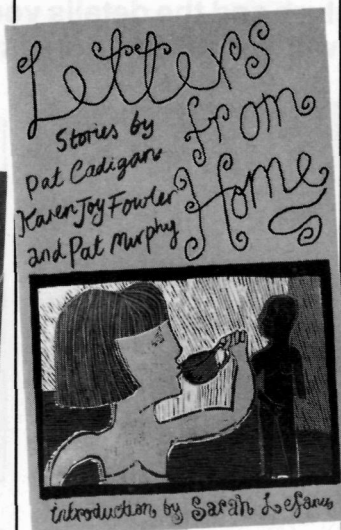 Letters
from
Home
Stories by
Pat Cadigan
Karen Joy Fowler
and Pat Murphy
introduction by Sarah Lefanu